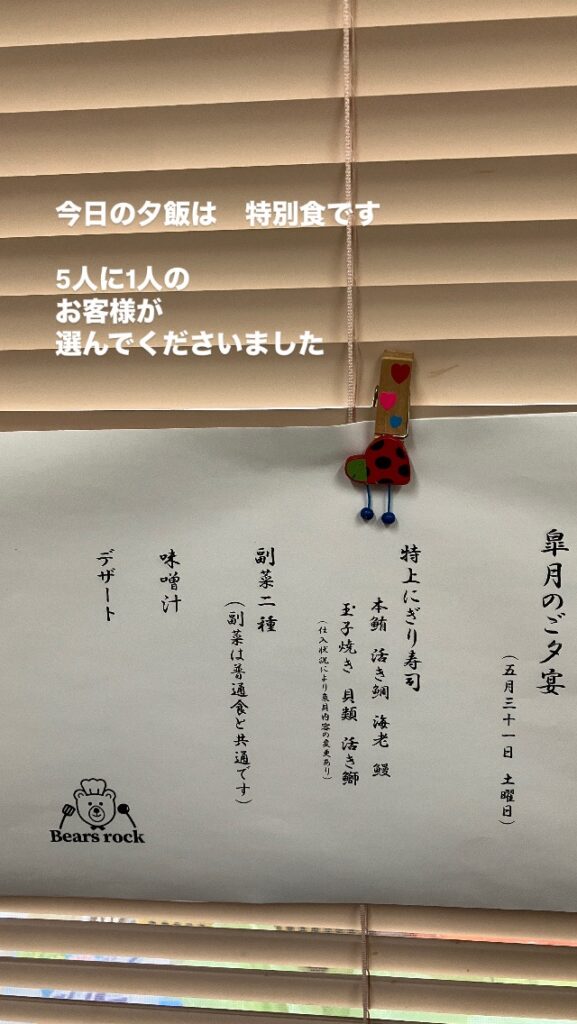 今日の夕飯は　特別食です
5人に1人の
お客様が
選んでくださいました
皐月のご夕宴
(五月三十一日　土曜日)
特上にぎり寿司
本鮪　活き鯛　海老　鰻
玉子焼き　貝類　活き鰤
(仕入状況により魚貝内容の変更あり)
副菜二種
(副菜は普通食と共通です)
味噌汁
デザート
Bears rock